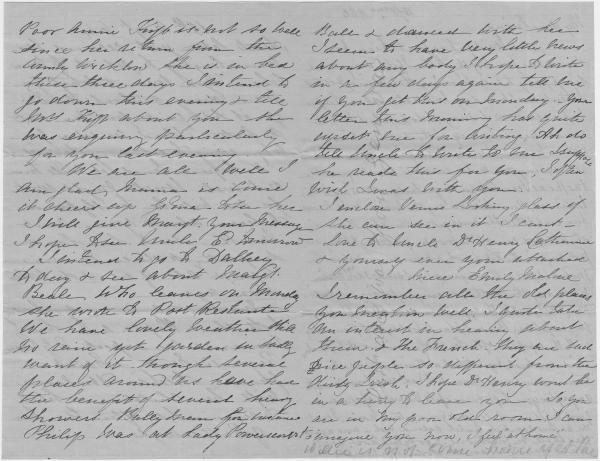 Poor Annie Tripp is not so well
since her return from the
County Wicklow She is in bed
these three days I intend to
go down this evening & tell
Mrs Tripp about you she
was enquiring particularly
for you last evening
We are all well I
am glad mama is come
it cheers up to see her
I will give Margt. your message
I hope to see Uncle E. tomorrow
I intend to go to Dalkey
to day & see about Margt.
Beale who leaves on Monday
she wrote to Post Restante
We have lovely weather still
no rain yet garden sadly
want of it though several
places around us have had
the benefit of several heavy
showers Ballybran for instance
Philip was at Lady Powerscourt's
Ball & danced with her
I seem to have very little news
about any body I hope to write
in a few days again tell me
if you get this on Monday. Your
letter this morning has quite
upset me for writing. Ah do
tell Uncle to write to me I suppose
he reads this for you. I often
wish I was with you
I enclose Venus Looking glass if
she can see in it I cant
love to Uncle Dr. Henry Catherine
& yourself ever your attached
Niece Emily Malone
I remember all the old places
you mention well. I quite take
an interest in hearing about
them & the French. they are such
nice people so different from the
Kindly Irish. I hope Dr. Henry wont be
in a hurry to leave you So you
are in my poor old room I can
imagine you now, I feel "at home"